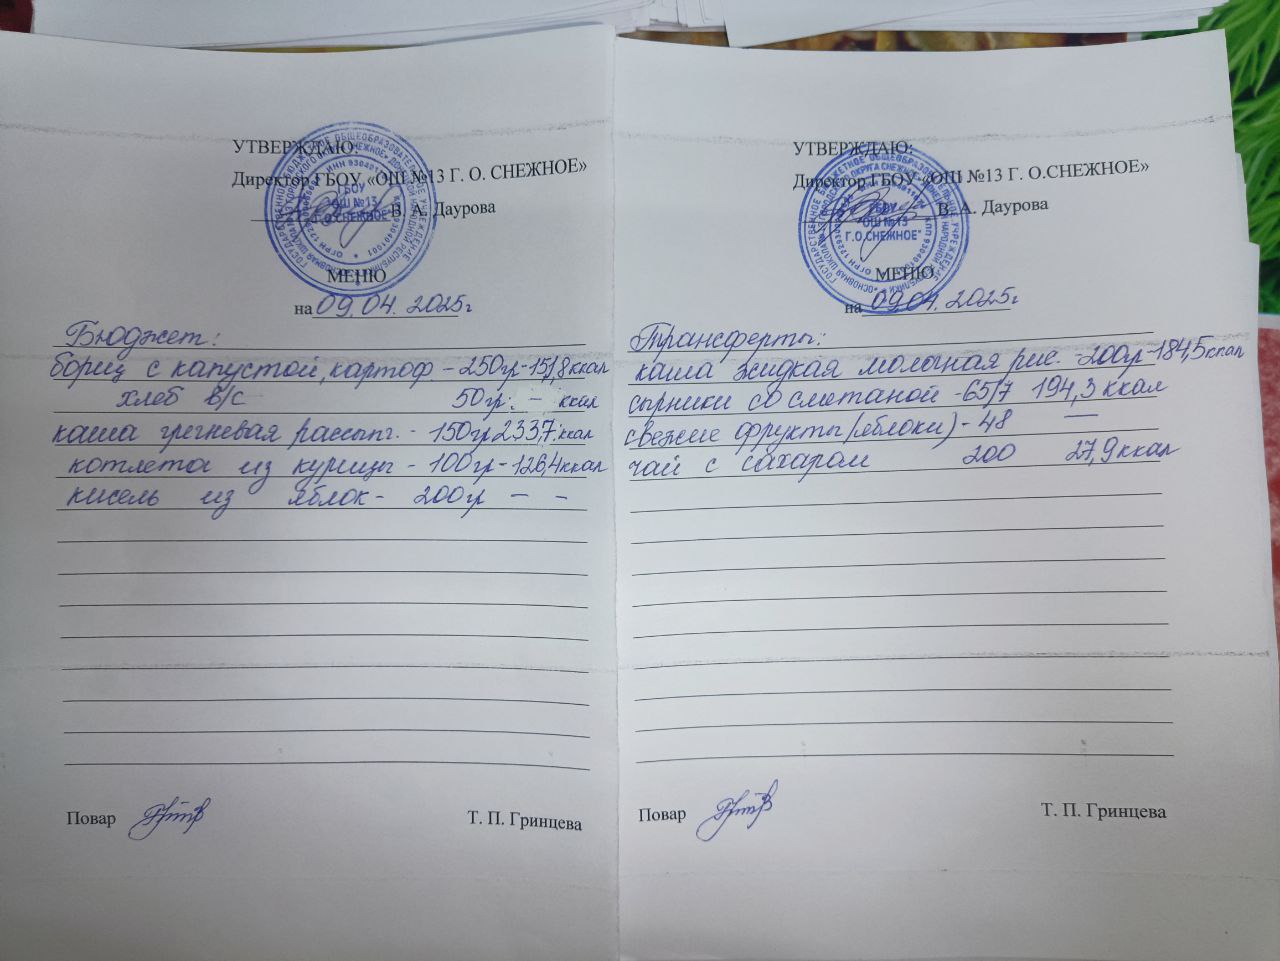 УТВЕРЖДАЮ:
Директор ГБОУ «ОШ №13 Г. О. СНЕЖНОЕ»
В. А. Даурова
ГБОУ
ОШ №13
Г.О.СНЕЖНОЕ"
МЕНЮ
на 09.04. 2025г
Бюджет:
борщ с капустой, картоф. - 250гр-151,8ккал
хлеб в/с 50гр. - ккал
каша гречневая рассып. - 150гр 233,7 ккал
котлета из курицы - 100гр-126,4ккал
кисель из яблок - 200гр - -
Повар
Т. П. Гринцева
УТВЕРЖДАЮ:
Директор ГБОУ «ОШ №13 Г. О.СНЕЖНОЕ»
В. А. Даурова
ГБОУ
ОШ №13
Г.О.СНЕЖНОЕ"
МЕНЮ
на 09.04. 2025г
Трансферты:
каша жидкая молочная рис. -200гр-184,5ккал
сырники со сметаной -65/7 194,3 ккал
свежие фрукты (яблоки) - 48 —
чай с сахаром 200 27,9ккал
Повар
Т. П. Гринцева